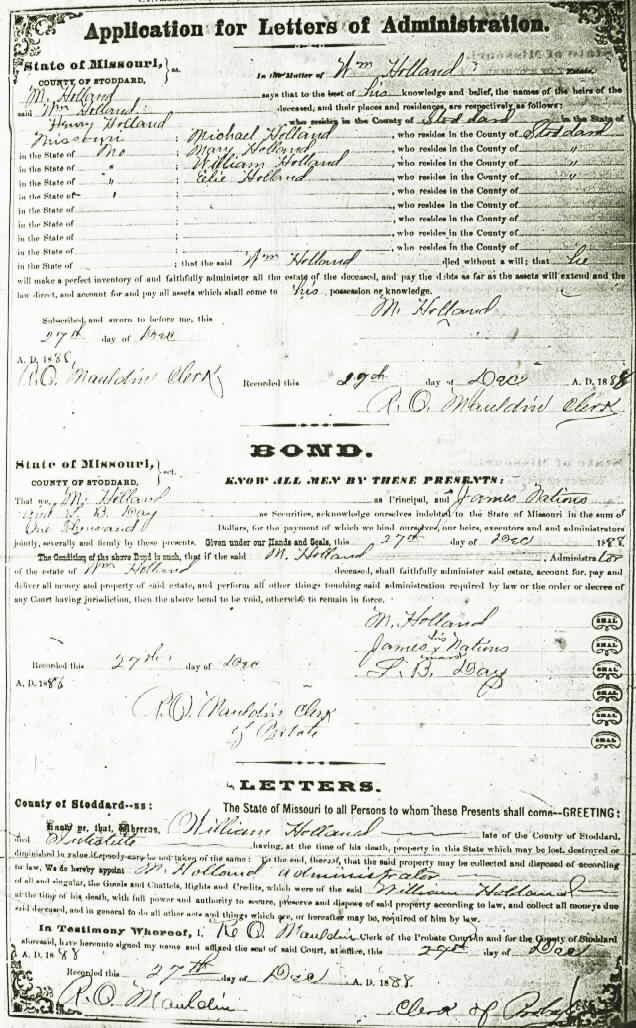 Application for Letters of Administration.
State of Missouri, } ss.
COUNTY OF STODDARD,
In the Matter of Wm Holland Estate.
M. Holland says that to the best of his knowledge and belief, the names of the heirs of the
said Wm Holland deceased, and their places and residences, are respectively as follows:
Henry Holland who resides in the County of Stoddard in the State of
Missouri ; Michael Holland , who resides in the County of Stoddard
in the State of Mo ; Mary Holland , who resides in the County of "
in the State of " ; William Holland , who resides in the County of "
in the State of " ; Elie Holland , who resides in the County of "
in the State of " ; , who resides in the County of
in the State of ; , who resides in the County of
in the State of ; , who resides in the County of
in the State of ; , who resides in the County of
in the State of ; , who resides in the County of
in the State of ; that the said Wm Holland died without a will; that he
will make a perfect inventory of and faithfully administer all the estate of the deceased, and pay the debts as far as the assets will extend and the
law direct, and account for and pay all assets which shall come to his possession or knowledge.
M. Holland
Subscribed and sworn to before me, this
27th day of Dec
A. D. 1888
R. O. Mauldin Clerk
Recorded this 27th day of Dec A. D. 1888
R. O. Mauldin Clerk
BOND.
State of Missouri, } sct.
COUNTY OF STODDARD,
KNOW ALL MEN BY THESE PRESENTS:
That we, M. Holland as Principal, and James Nations
and L. B. Day as Securities, acknowledge ourselves indebted to the State of Missouri in the sum of
One thousand Dollars, for the payment of which we bind ourselves, our heirs, executors and and administrators
jointly, severally and firmly by these presents. Given under our Hands and Seals, this 27th day of Dec 1888
The Condition of the above Bond is such, that if the said M. Holland , Administrator
of the estate of Wm Holland deceased, shall faithfully administer said estate, account for, pay and
deliver all money and property of said estate, and perform all other things touching said administration required by law or the order or decree of
any Court having jurisdiction, then the above bond to be void, otherwise to remain in force.
M. Holland SEAL
James his x mark Nations SEAL
L. B. Day SEAL
SEAL
SEAL
SEAL
Recorded this 27th day of Dec
A. D. 1888
R. O. Mauldin Clerk
of Probate
LETTERS.
County of Stoddard--ss: The State of Missouri to all Persons to whom these Presents shall come--GREETING:
Know ye, that, Whereas, William Holland late of the County of Stoddard,
died Intestate having, at the time of his death, property in this State which may be lost, destroyed or
diminished in value if speedy care be not taken of the same: To the end, therefore, that the said property may be collected and disposed of according
to law, We do hereby appoint M. Holland administrator
of all and singular, the Goods and Chattels, Rights and Credits, which were of the said William Holland
at the time of his death, with full power and authority to secure, preserve and dispose of said property according to law, and collect all moneys due
said deceased, and in general to do all other acts and things which are, or hereafter may be, required of him by law.
In Testimony Whereof, I, R. O. Mauldin Clerk of the Probate Court in and for the County of Stoddard
aforesaid, have hereunto signed my name and affixed the seal of said Court, at office, this 27th day of Dec
A. D. 1888
Recorded this 27th day of Dec A. D. 1888.
R. O. Mauldin Clerk of Probate